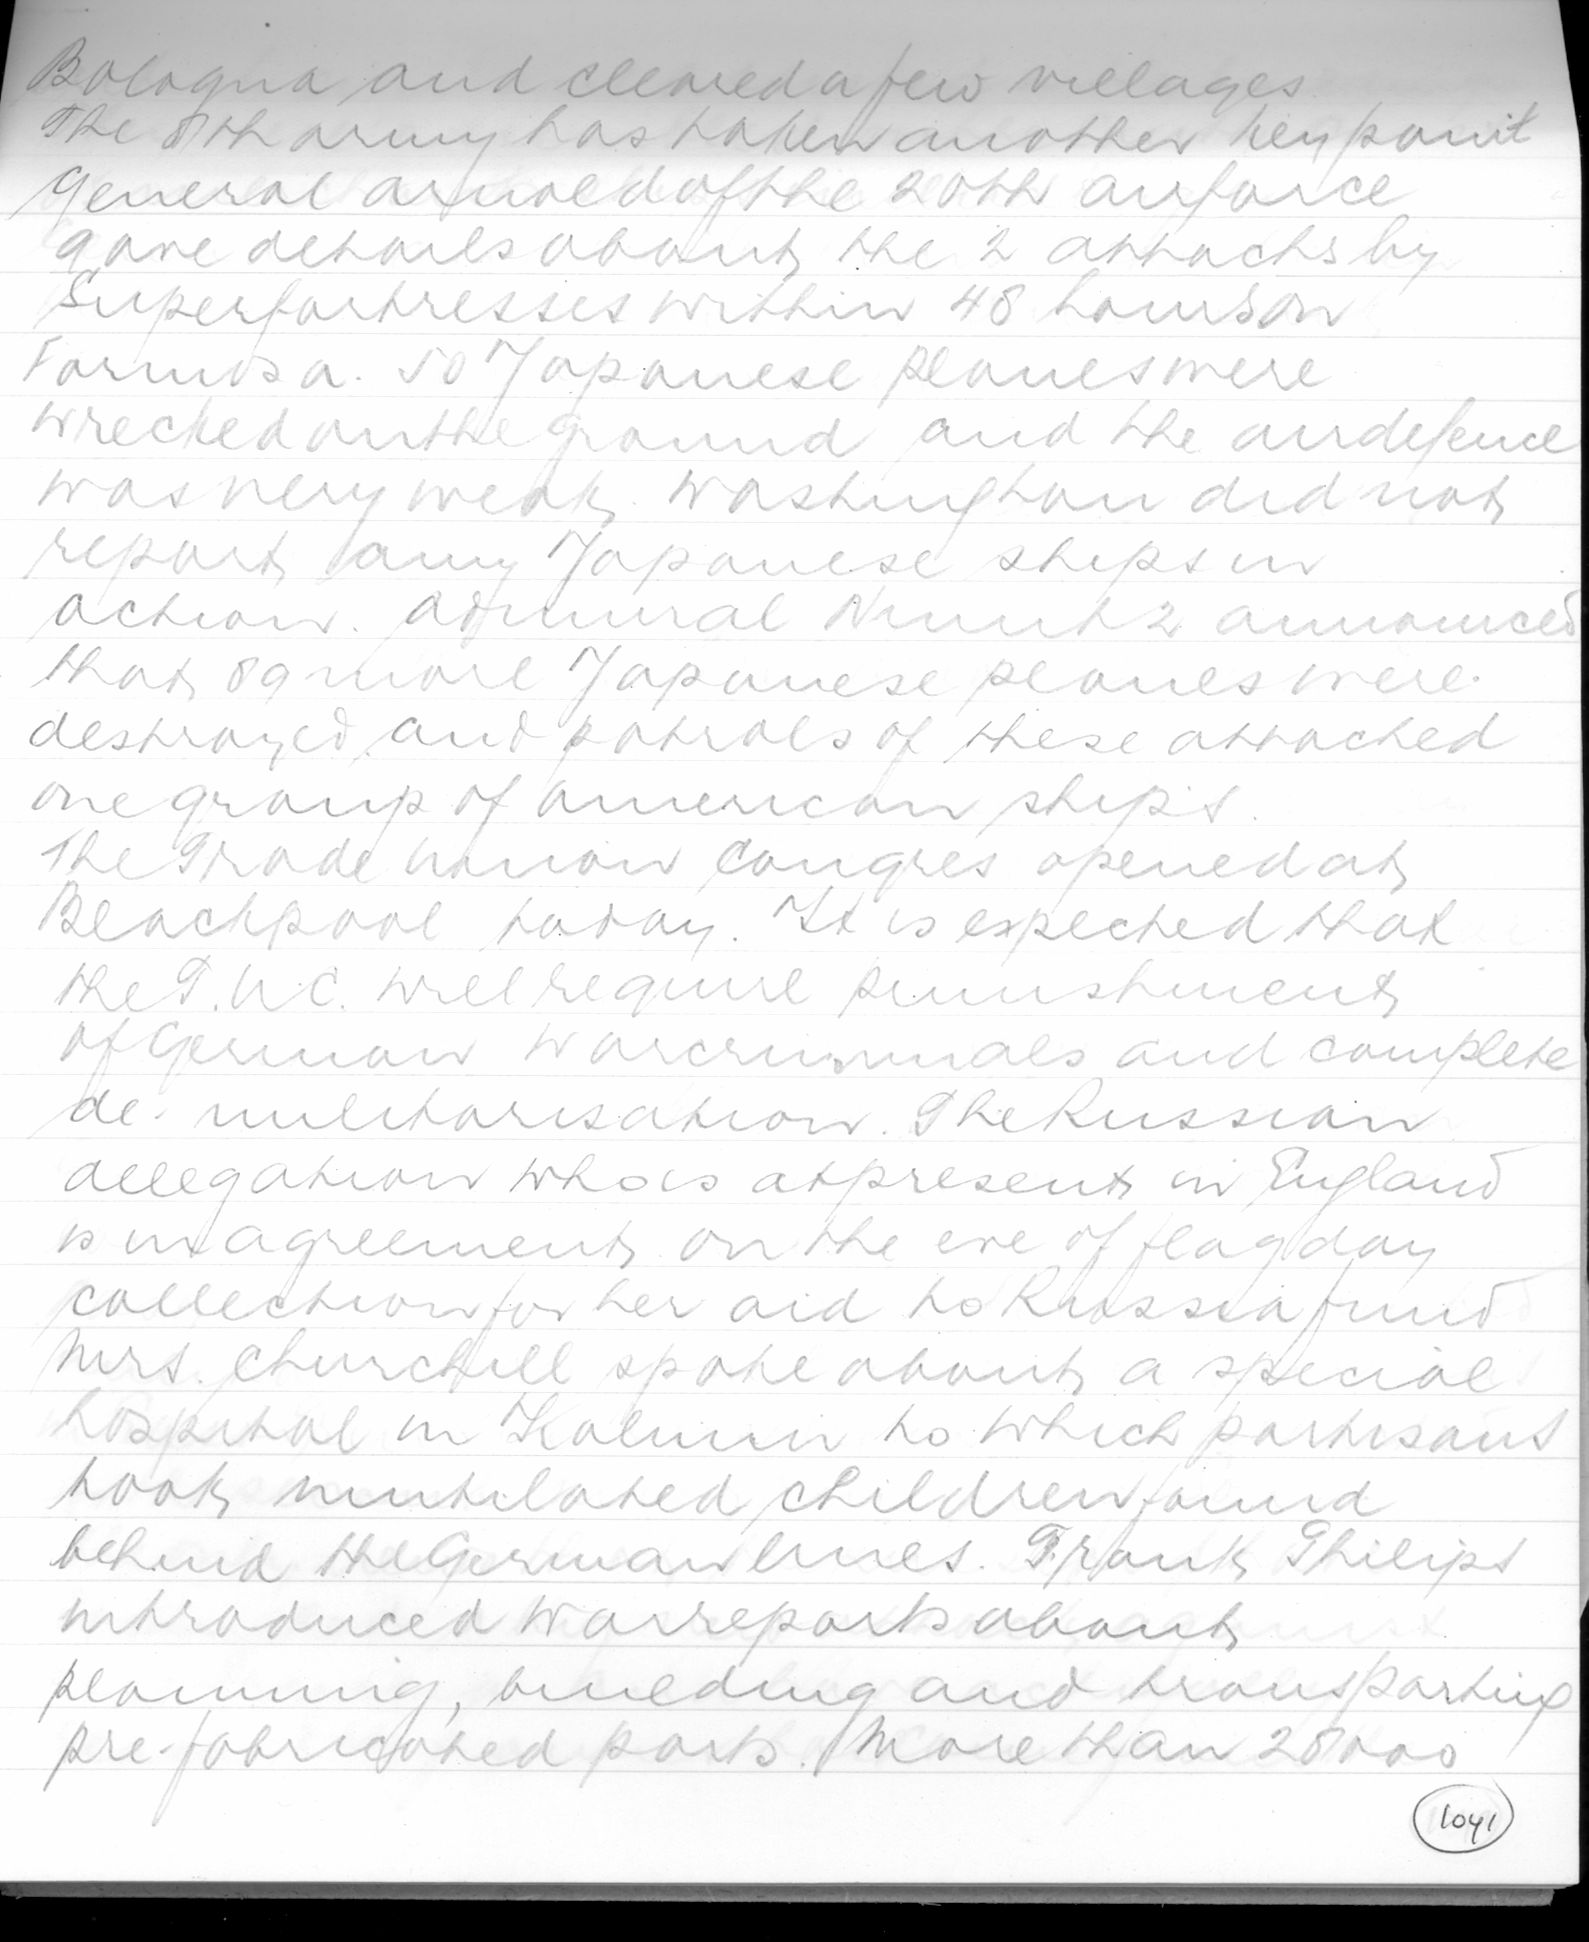 Bologna and cleared a few villages.
The 8th army has taken another key point
General Arnold of the 20th airforce
gave details about the 2 attacks by
Superfortresses within 48 hours on
Formosa. 50 Japanese planes were
wrecked on the ground and the airdefence
was very weak. Washington did not
report any Japanese ships in
action. Admiral Nimitz announced
that 89 more Japanese planes were
destroyed and patrols of these attacked
one group of American ships.
The Trade Union Congres opened at
Blackpool today. It is expected that
the T.U.C. will require punishment
of German warcriminals and complete
de-militarisation. The Russian
delegation who is at present in England
is in agreement on the eve of flagday
collection for her aid to Russia fund
Mrs. Churchill spoke about a special
hospital in Kalinin to which partisans
took mutilated children found
behind the German lines. Frank Philips
introduced warreports about
planning, building and transporting
pre-fabricated ports. More than 28000
1041